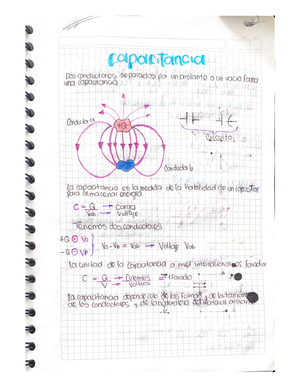 Capacitancia
Dos conductores separados por un aislante o un vacio forma
una capacitancia
Conductor a
+Q
Circuito:
-Q
Conductor b
La capacitancia es la medida de la habilidad de un capacitor
para almacenar energía
C = Q → Carga
Vab → Voltaje
Tenemos dos conductores
+Q ⊕ Va
-Q ⊖ Vb
Va - Vb = Vab → Voltaje Vab
La unidad de la capacitancia a nivel internacional es Faradio
C = Q → Coulombs = Farado
V → Voltios
La capacitancia depende solo de las formas y de los tamaños
de los conductores y de la naturaleza del material